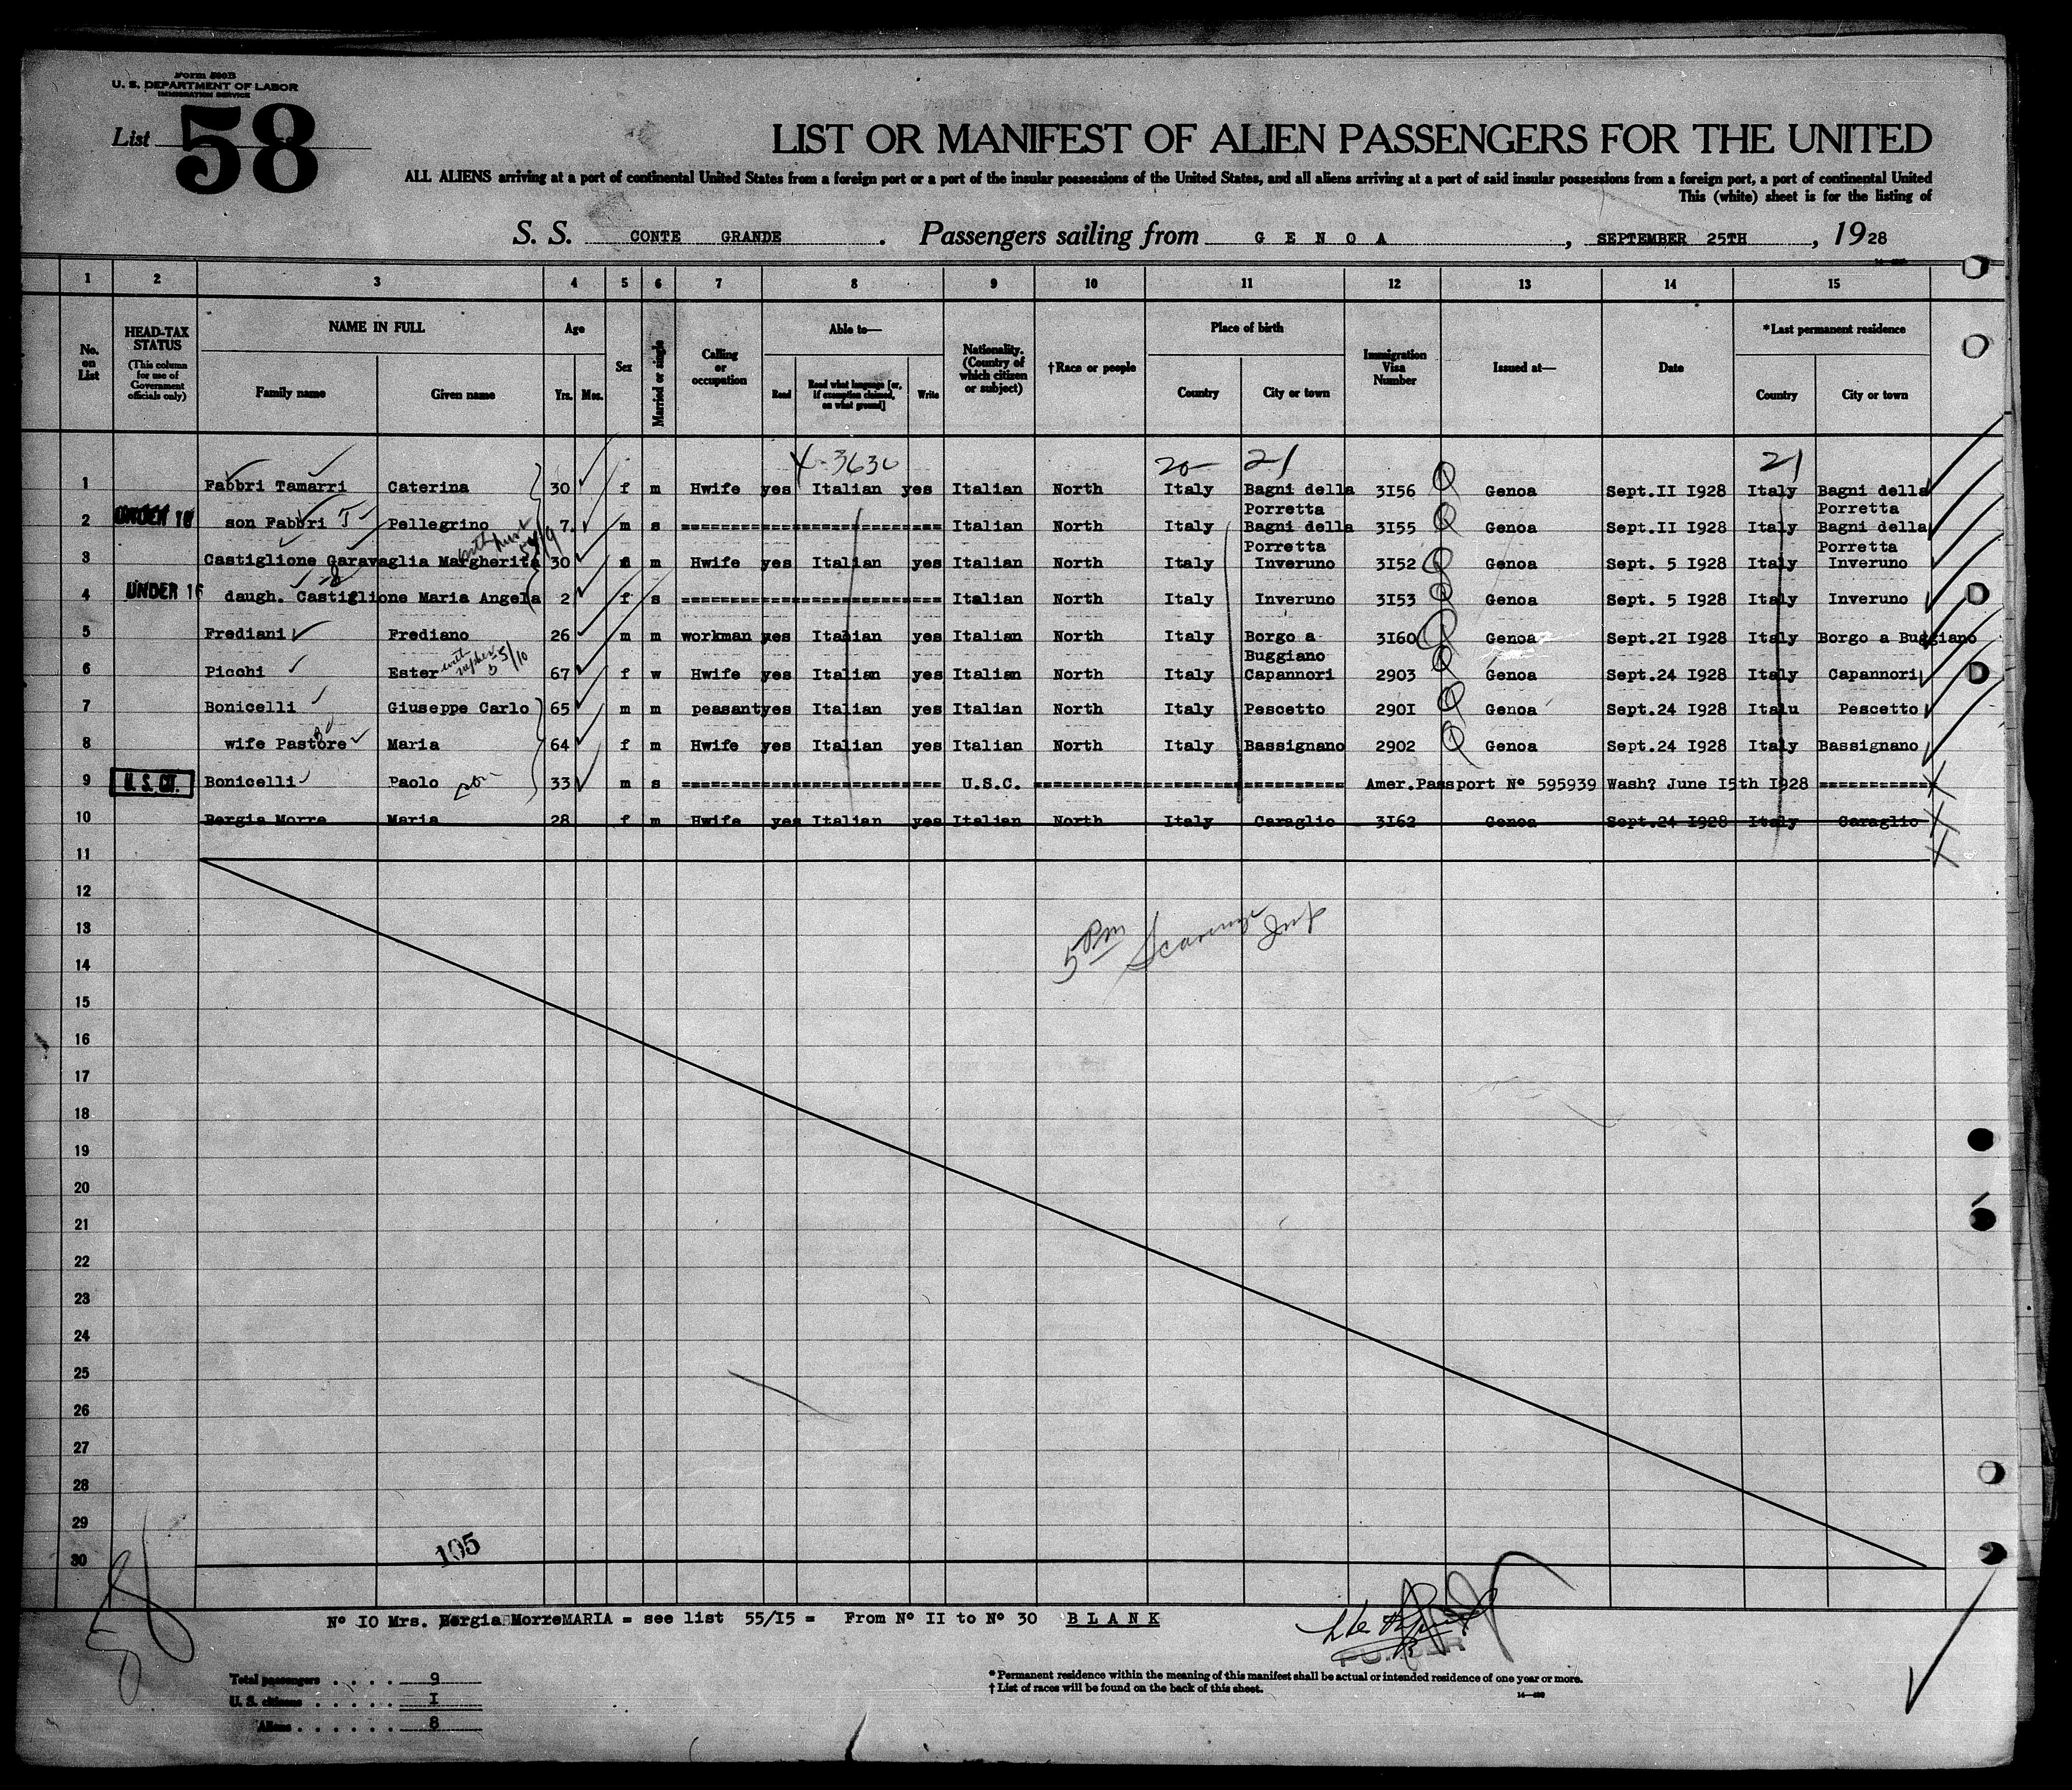 Form 500B
U. S. DEPARTMENT OF LABOR
IMMIGRATION SERVICE
List 58
LIST OR MANIFEST OF ALIEN PASSENGERS FOR THE UNITED
ALL ALIENS arriving at a port of continental United States from a foreign port or a port of the insular possessions of the United States, and all aliens arriving at a port of said insular possessions from a foreign port, a port of continental United
This (white) sheet is for the listing of
S. S. CONTE GRANDE . Passengers sailing from G E N O A , SEPTEMBER 25TH , 1928
1 2 3 4 5 6 7 8 9 10 11 12 13 14 15
No. on List
HEAD-TAX STATUS (This column for use of Government officials only)
NAME IN FULL
Family name Given name
Age
Yrs. Mos.
Sex
Married or single
Calling or occupation
Able to—
Read Read what language [or, if exemption claimed, on what ground] Write
Nationality. (Country of which citizen or subject)
†Race or people
Place of birth
Country City or town
Immigration Visa Number
Issued at—
Date
*Last permanent residence
Country City or town
X-3630 20 21 21
1 Fabbri Tamarri Caterina 30 f m Hwife yes Italian yes Italian North Italy Bagni della Porretta 3I56 Genoa Sept.II I928 Italy Bagni della Porretta
2 UNDER 16 son Fabbri Pellegrino 7 m s ======================== Italian North Italy Bagni della Porretta 3I55 Genoa Sept.II I928 Italy Bagni della Porretta
3 Castiglione Garavaglia Margherita 30 m Hwife yes Italian yes Italian North Italy Inveruno 3I52 Genoa Sept. 5 I928 Italy Inveruno
4 UNDER 16 daugh. Castiglione Maria Angela 2 f s ======================== Italian North Italy Inveruno 3I53 Genoa Sept. 5 I928 Italy Inveruno
5 Frediani Frediano 26 m m workman yes Italian yes Italian North Italy Borgo a Buggiano 3I60 Genoa Sept.2I I928 Italy Borgo a Buggiano
6 Picchi Ester 67 f w Hwife yes Italian yes Italian North Italy Capannori 2903 Genoa Sept.24 I928 Italy Capannori
7 Bonicelli Giuseppe Carlo 65 m m peasant yes Italian yes Italian North Italy Pescetto 290I Genoa Sept.24 I928 Italu Pescetto
8 wife Pastore Maria 64 f m Hwife yes Italian yes Italian North Italy Bassignano 2902 Genoa Sept.24 I928 Italy Bassignano
9 U. S. CIT. Bonicelli Paolo son 33 m s ======================== U.S.C. ============================ Amer.Passport Nº 595939 Wash? June I5th I928 ==========
10 Bergia Morre Maria 28 f m Hwife yes Italian yes Italian North Italy Caraglio 3I62 Genoa Sept.24 I928 Italy Caraglio
11
12
13
5 Pm
14
15
16
17
18
19
20
21
22
23
24
25
26
27
28
29
105
30
58
Nº IO Mrs. Bergia Morre MARIA = see list 55/I5 = From Nº II to Nº 30 B L A N K
PURSER
Total passengers . . . . 9
U. S. citizens . . . . . I
Aliens . . . . . . 8
* Permanent residence within the meaning of this manifest shall be actual or intended residence of one year or more.
† List of races will be found on the back of this sheet.